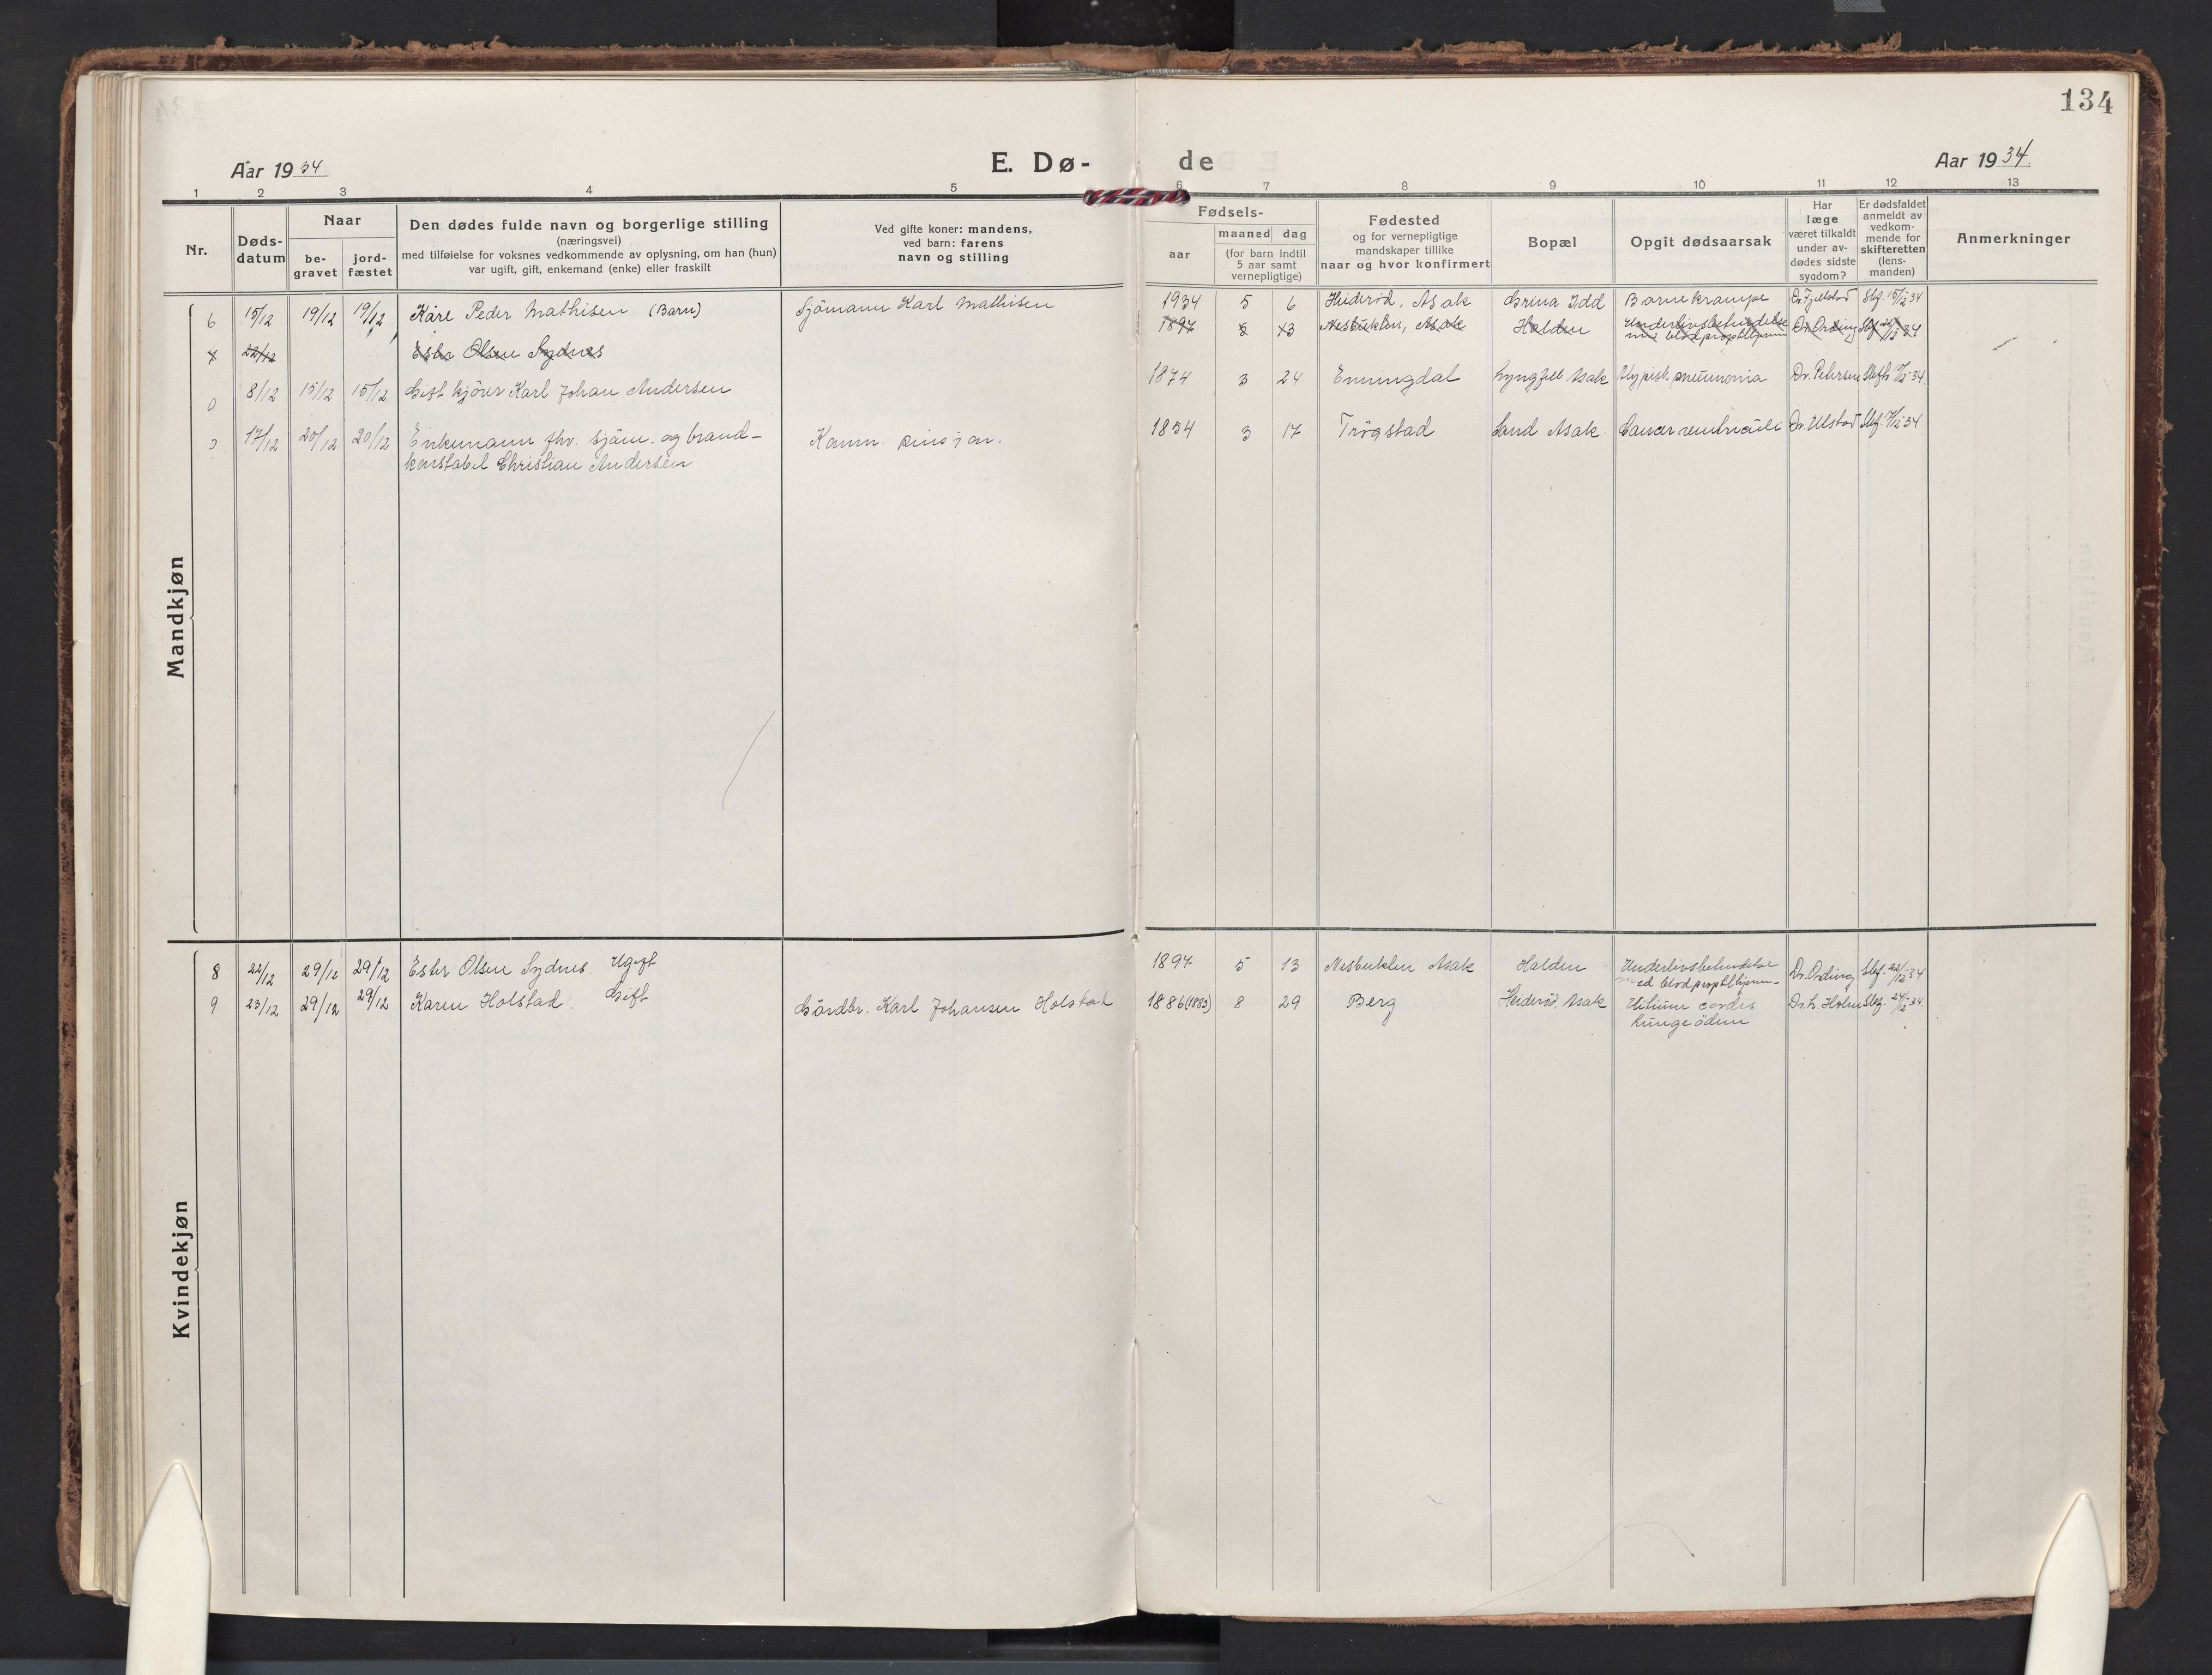 134
Aar 1934 E. Dø- de Aar 1934
1 2 3 4 5 6 7 8 9 10 11 12 13
Nr.
Døds-
datum
Naar
be-
gravet
jord-
fæstet
Den dødes fulde navn og borgerlige stilling
(næringsvei)
med tilføielse for voksnes vedkommende av oplysning, om han (hun)
var ugift, gift, enkemand (enke) eller fraskilt
Ved gifte koner: mandens,
ved barn: farens
navn og stilling
Fødsels-
aar
maaned dag
(for barn indtil
5 aar samt
vernepligtige)
Fødested
og for vernepligtige
mandskaper tillike
naar og hvor konfirmert
Bopæl
Opgit dødsaarsak
Har
læge
været tilkaldt
under av-
dødes sidste
sygdom?
Er dødsfaldet
anmeldt av
vedkom-
mende for
skifteretten
(lens-
manden)
Anmerkninger
Mandkjøn
6 15/12 19/12 19/12 Kåre Peder Mathisen (Barn) Sjömann Karl Mathisen 1934 5 6 Heideröd, Asak Grina Idd Barnekrampe Dr. Fjellstad Skf. 15/12 34
x 22/12 Ester Olsen Sydnes 1897 5 13 Nesbukten, Asak Halden Underlivsbetendelse
med blodpropp til hjernen Dr. Ording Skf. 22/12 34
0 8/12 15/12 15/12 Gift kjörer Karl Johan Andersen 1874 3 24 Enningdal Lyngfelt Asak pneumonia Dr. Petersen 34
0 17/12 20/12 20/12 Enkemann fhv. sjöm. og brand-
konstabel Christian Andersen
Komm. pensjon. 1854 3 17 Trögstad Sand Asak Cancer ventriculi Dr. Ulstad Skf. 34
Kvindekjøn
8 22/12 29/12 29/12 Ester Olsen Sydnes. Ugift 1897 5 13 Nesbukten Asak Halden Underlivsbetendelse
med blodpropp til hjernen Dr. Ording Skf. 22/12 34
9 23/12 29/12 29/12 Karen Holstad. Gift Gårdbr. Karl Johansen Holstad 1886 (1883) 8 29 Berg Heideröd, Asak Vitium cordis
Lungeödem Dr. L. Holm Skf. 24/12 34